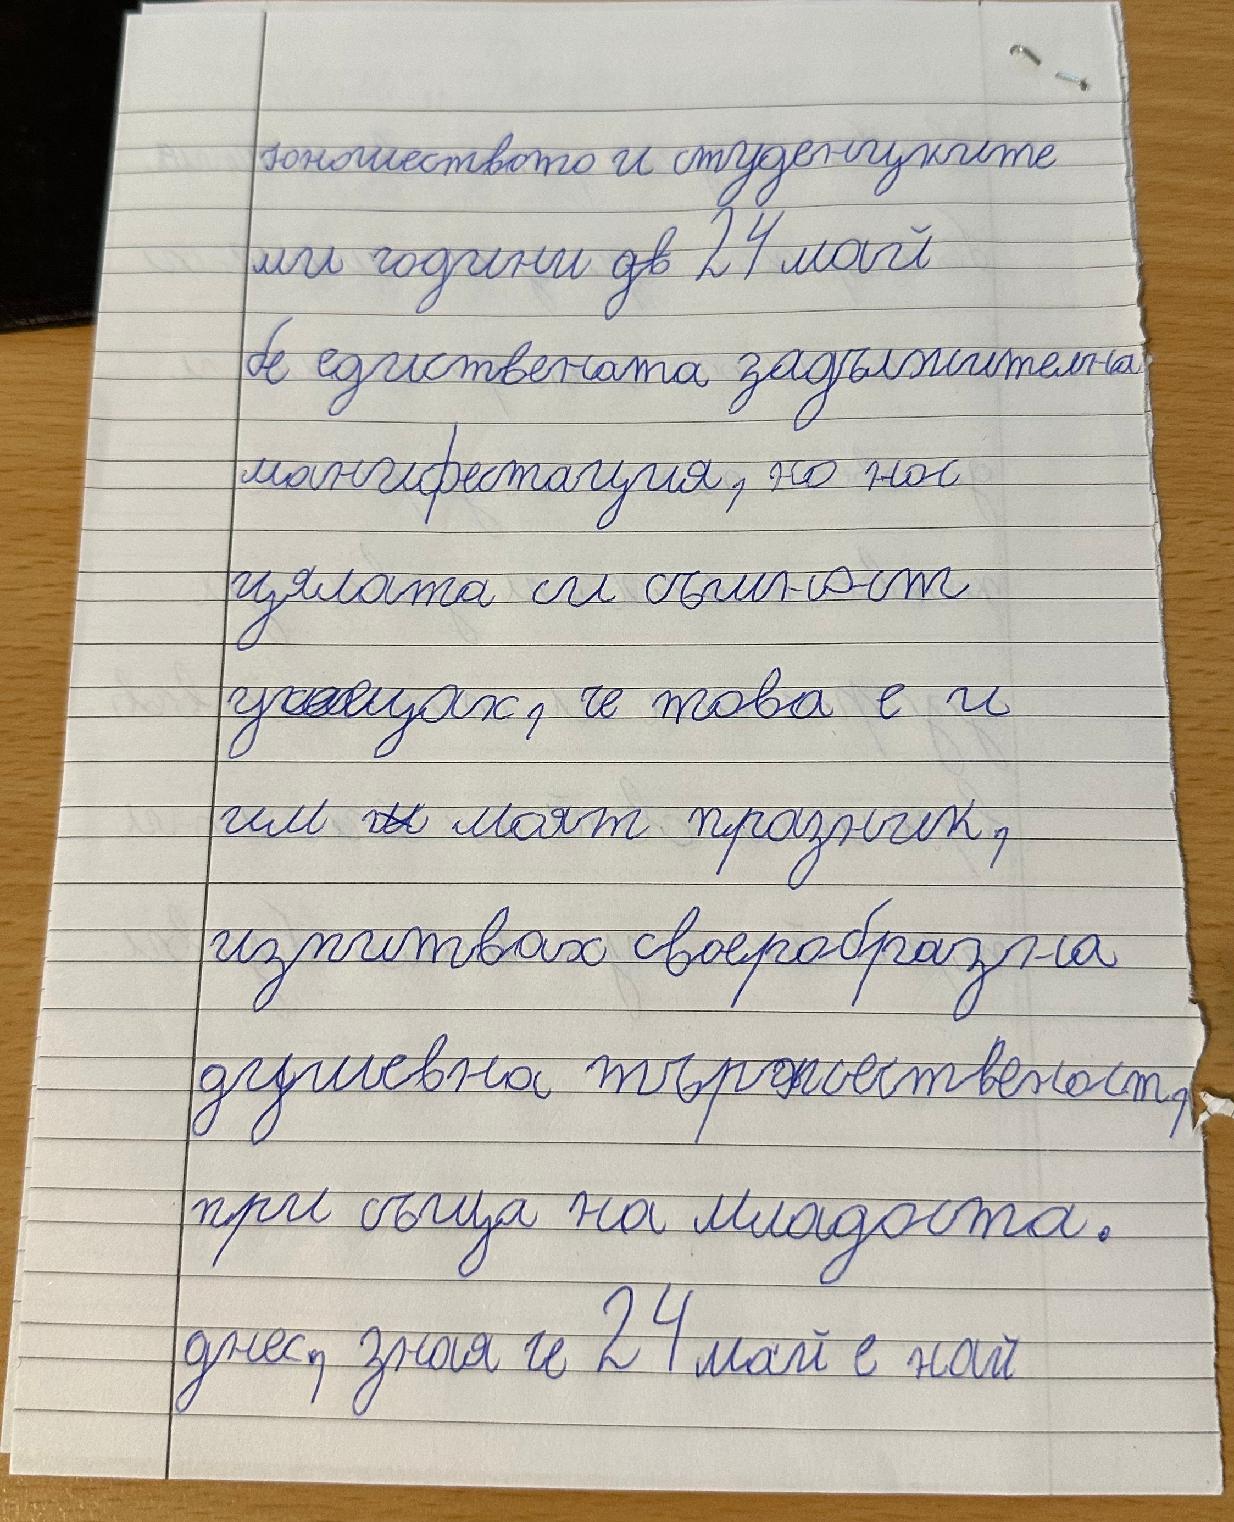 юношеството и студенцките
ми години дв 24 май
бе едиствената задължителна
манифестация, но нос
цялата си същност
усещах, че това е и
им моят празник,
изпитвах своеробразна
душевна тържественост,
при съща на младоста.
днес, зная че 24 май е най